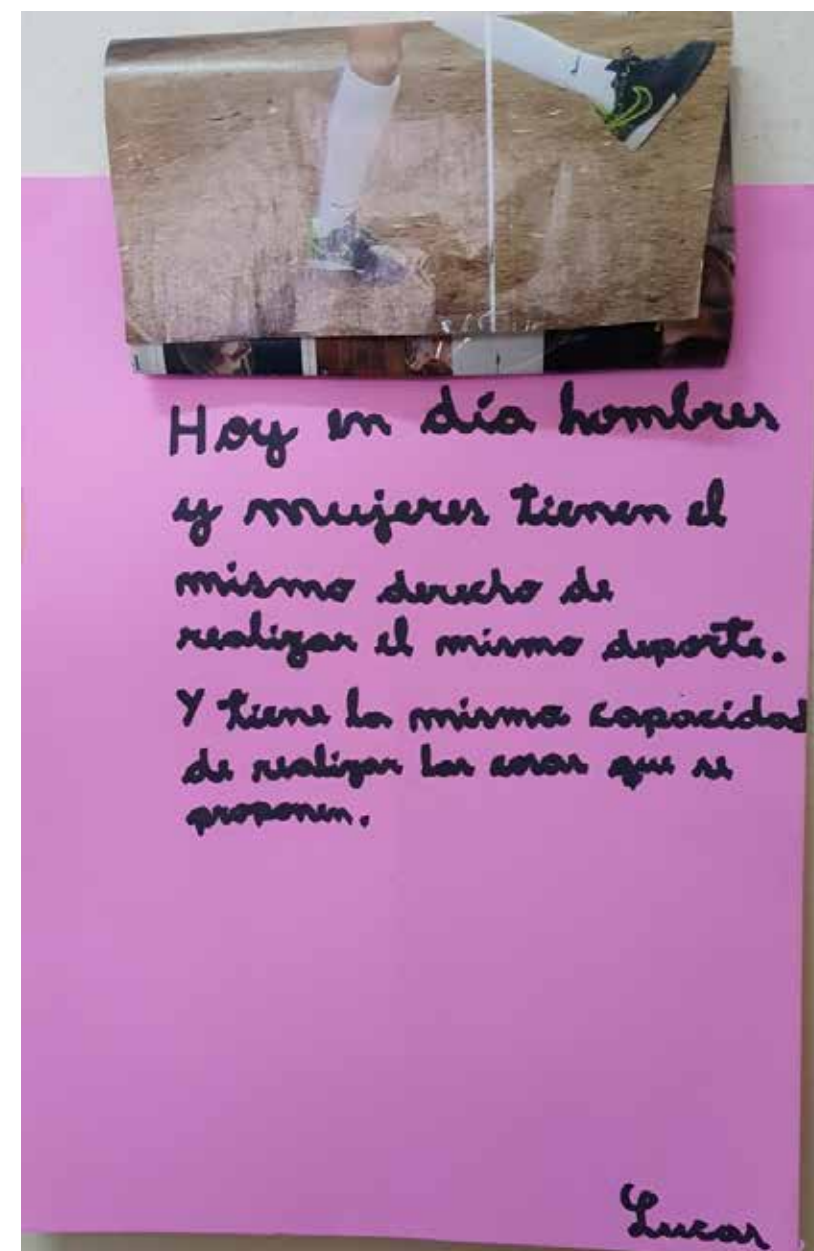 Hoy en día hombres
y mujeres tienen el
mismo derecho de
realizar el mismo deporte.
Y tiene la misma capacidad
de realizar las cosas que se
proponen.
Lucas